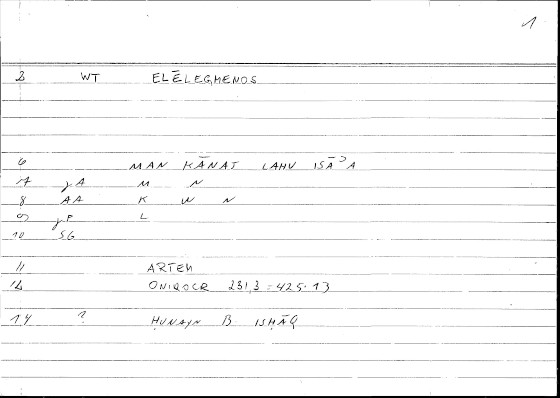 1
2 WT ELĒLEGMENOS
6 MAN KĀNAT LAHU ISĀʾA
7 γA M N
8 AA K W N
9 γF L
10 SG
11 ARTEM
12 ONIROCR 231,3 = 425.13
14 ? ḤUNAYN B ISḤĀQ